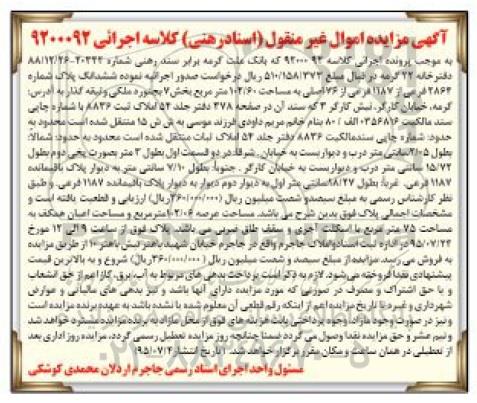 آگهی مزایده اموال غیر منقول (اسناد رهنی) کلاسه اجرائی ۹۲۰۰۰۹۲
به موجب پرونده اجرائی کلاسه ۹۲۰۰۰۹۲ که بانک ملت گرمه برابر سند رهنی شماره ۲۰۳۴۴-۸۸/۱۲/۲۶
دفترخانه ۲۲ گرمه در قبال مبلغ ۵۱۰/۱۵۸/۳۷۲ ریال درخواست صدور اجرائیه نموده ششدانگ پلاک شماره
۲۸۶۴ فرعی از ۱۱۸۷ فرعی از ۷۶ اصلی به مساحت ۱۰۲/۶۰ متر مربع بخش ۷ بجنورد ملکی وثیقه گذار به آدرس:
گرمه، خیابان کارگر، نبش کارگر ۳ که سند آن در صفحه ۳۷۸ دفتر جلد ۵۴ املاک ثبت ۸۸۳۶ با شماره چاپی
سند مالکیت ۰۳۵۶۸۱۶ الف / ۸۰ بنام خانم مریم داودی فرزند موسی به ش ش ۱۵ منتقل شده است محدود به
حدود: شماره چاپی سند مالکیت ۸۸۳۶ دفتر جلد ۵۴ املاک ثبت منتقل شده است محدود به حدود: شمالا:
بطول ۲/۰۵ سانتی متر درب و دیواریست به خیابان. شرقا: در دو قسمت اول بطول ۳ متر بصورت پخی دوم بطول
۱۵/۷۲ سانتی متر درب و دیواریست به خیابان کارگر. جنوبا: بطول ۷/۱۰ سانتی متر به دیوار پلاک باقیمانده
۱۱۸۷ فرعی. غربا: بطول ۱۸/۲۷ سانتی متر اول به دیوار دوم دیوار به دیوار پلاک باقیمانده ۱۱۸۷ فرعی و طبق
نظر کارشناس رسمی به مبلغ سیصد و شصت میلیون ریال (۳۶۰/۰۰۰/۰۰۰ ریال) ارزیابی و قطعیت یافته است و
مشخصات اجمالی پلاک فوق بدین شرح می باشد. مساحت عرصه ۱۰۲/۰۶ مترمربع و مساحت اعیان همکف به
مساحت ۷۵ متر مربع با اسکلت آجری و سقف طاق ضربی می باشد. پلاک فوق از ساعت ۹ الی ۱۲ مورخ
۹۵/۰۷/۲۴ در اداره ثبت اسناد و املاک جاجرم واقع در جاجرم خیابان شهید باهنر نبش باهنر ۱۰ از طریق مزایده
به فروش می رسد. مزایده از مبلغ سیصد و شصت میلیون ریال (۳۶۰/۰۰۰/۰۰۰ ریال) شروع و به بالاترین قیمت
پیشنهادی نقدا فروخته می شود. لازم به ذکر است پرداخت بدهی های مربوط به آب، برق، گاز اعم از حق انشعاب
و یا حق اشتراک و مصرف در صورتی که مورد مزایده دارای آنها باشد و نیز بدهی های مالیاتی و عوارض
شهرداری و غیره تا تاریخ مزایده اعم از اینکه رقم قطعی آن معلوم شده یا نشده باشد به عهده برنده مزایده است
و نیز در صورت وجود مازاد، وجوه پرداختی بابت هزینه های فوق از محل مازاد به برنده مزایده مسترد خواهد شد
و نیم عشر و حق مزایده نقدا وصول می گردد ضمنا چنانچه روز مزایده تعطیل رسمی گردد، مزایده روز اداری بعد
از تعطیلی در همان ساعت و مکان مقرر برگزار خواهد شد. تاریخ انتشار ۹۵/۰۷/۴
مسئول واحد اجرای اسناد رسمی جاجرم اردلان محمدی کوشکی